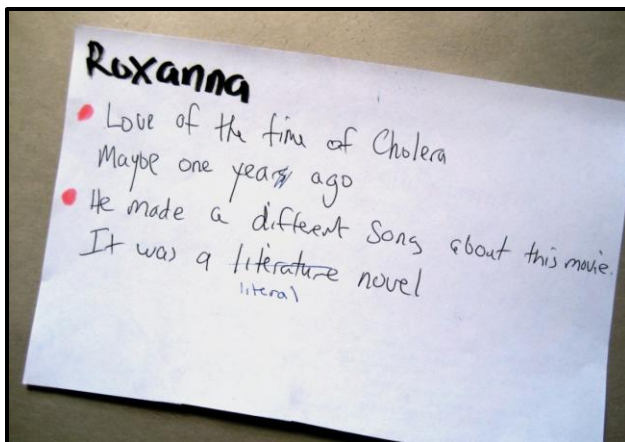 Roxanna
Love of the time of Cholera
Maybe one years ago
He made a different song about this movie.
It was a literature novel
literal